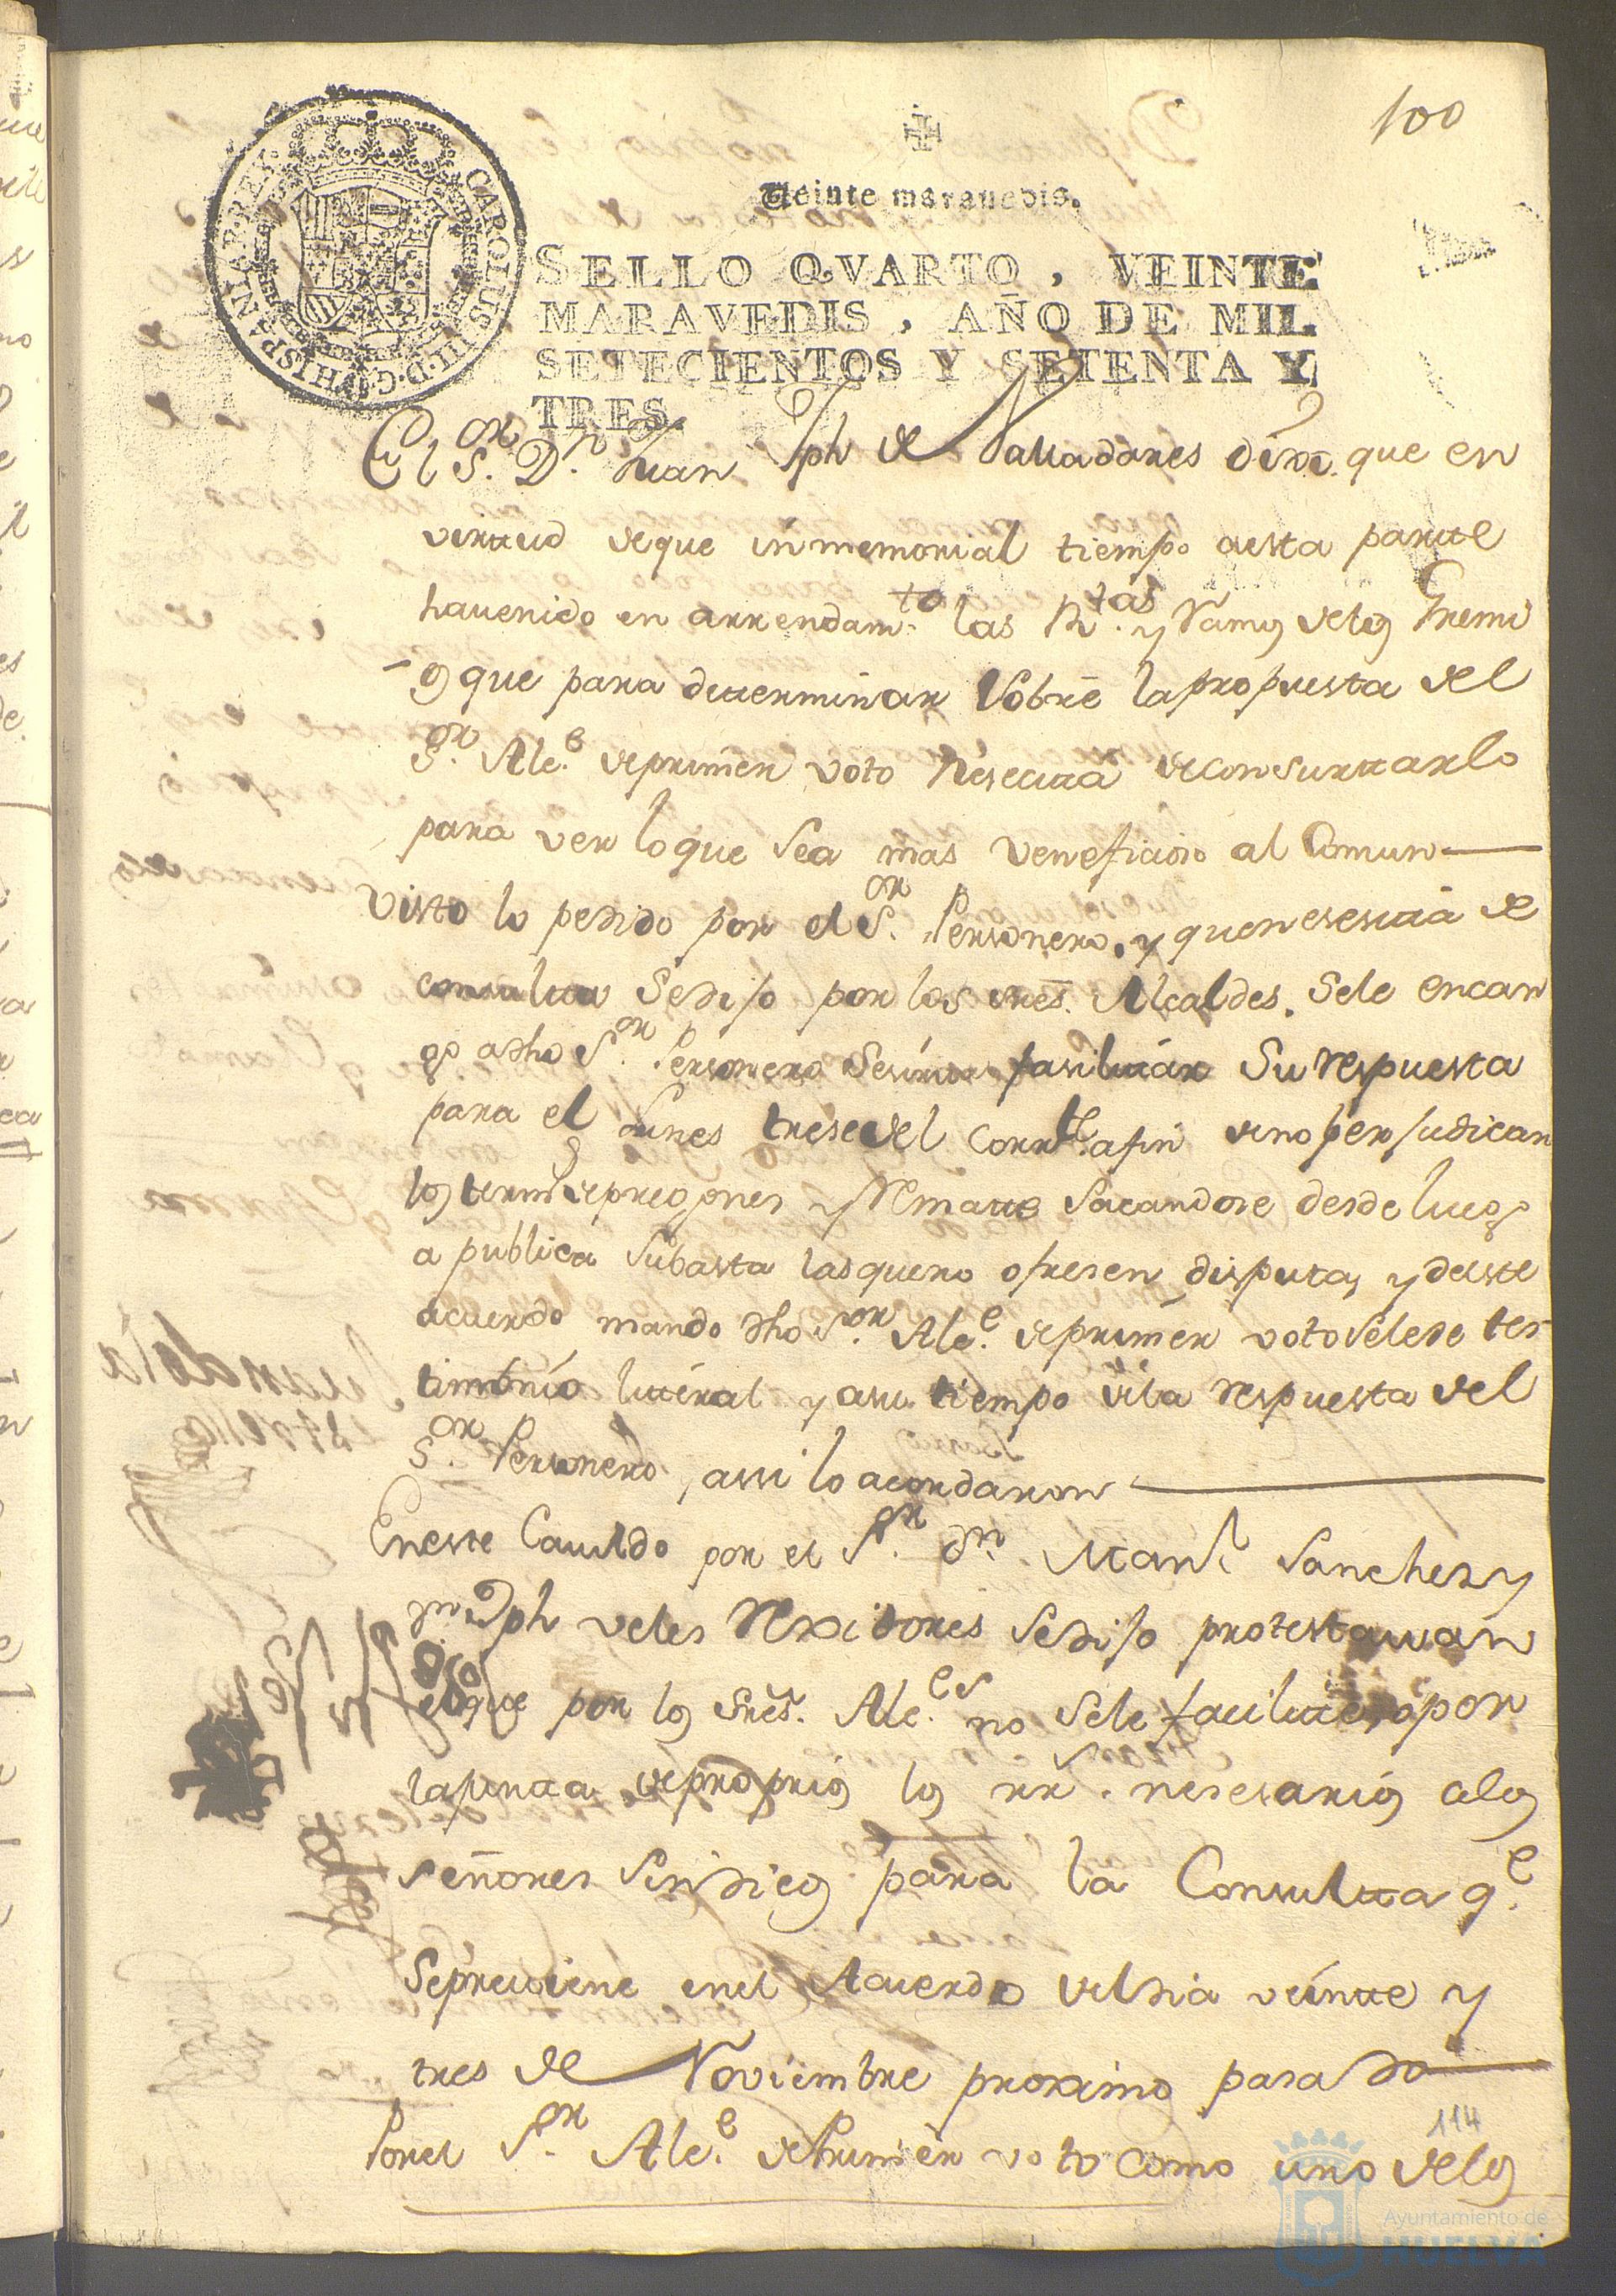 100
Veinte maravedis.
CAROLUS III. D. G. HISPANIAR. REX.
SELLO QVARTO, VEINTE
MARAVEDIS, AÑO DE MIL
SETECIENTOS Y SETENTA Y
TRES.
El S.or D.n Juan Jph de Valladares dixo que en
virtud de que inmemorial tiempo a esta parte
ha venido en arrendam.to las R.tas y Ramos de los Gremi
os que para determinar sobre la propuesta del
S.or Alc.e de primer voto nesecita de consultarlo
para ver lo que sea mas veneficioso al Comun
Visto lo pedido por el S.or Personero, y que nesesita de
consulta se dijo por los sres. Alcaldes. Se le encar
go a dho S.or Personero facilitar su respuesta
para el Lunes trese del corr.te afin de no perjudicar
los term.s de pregones y Remate sacandose desde luego
a publica subasta las que no ofresen disputa, y de este
acuerdo mando dho S.or Alc.e de primer voto se le de tes
timonio literal y a su tiempo de la respuesta del
S.or Personero, assi lo acordaron
En este Cavildo por el S.or D.n Man.l Sanches y
D.n Jph Veles Rexidores se dijo protestavan
el que por los Sres. Alc.es no se le facilite, o por
la junta de proprios los rr.s nesesarios a los
señores Sindicos para la Consulta q.e
se previene en el Acuerdo del dia veinte y
tres de Noviembre proximo pasado
Por el S.or Alc.e de Primer voto como uno de los
114
Ayuntamiento de
HUELVA